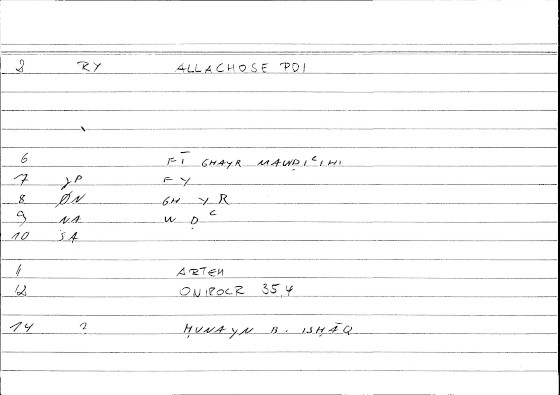 2 RY ALLACHOSE POI
6 FĪ GHAYR MAWḌIᶜIHI
7 JP F Y
8 ØN GH Y R
9 NA W Ḍ ᶜ
10 SA
11 ARTEM
12 ONIROCR 35,4
14 ? ḤUNAYN B. ISḤĀQ